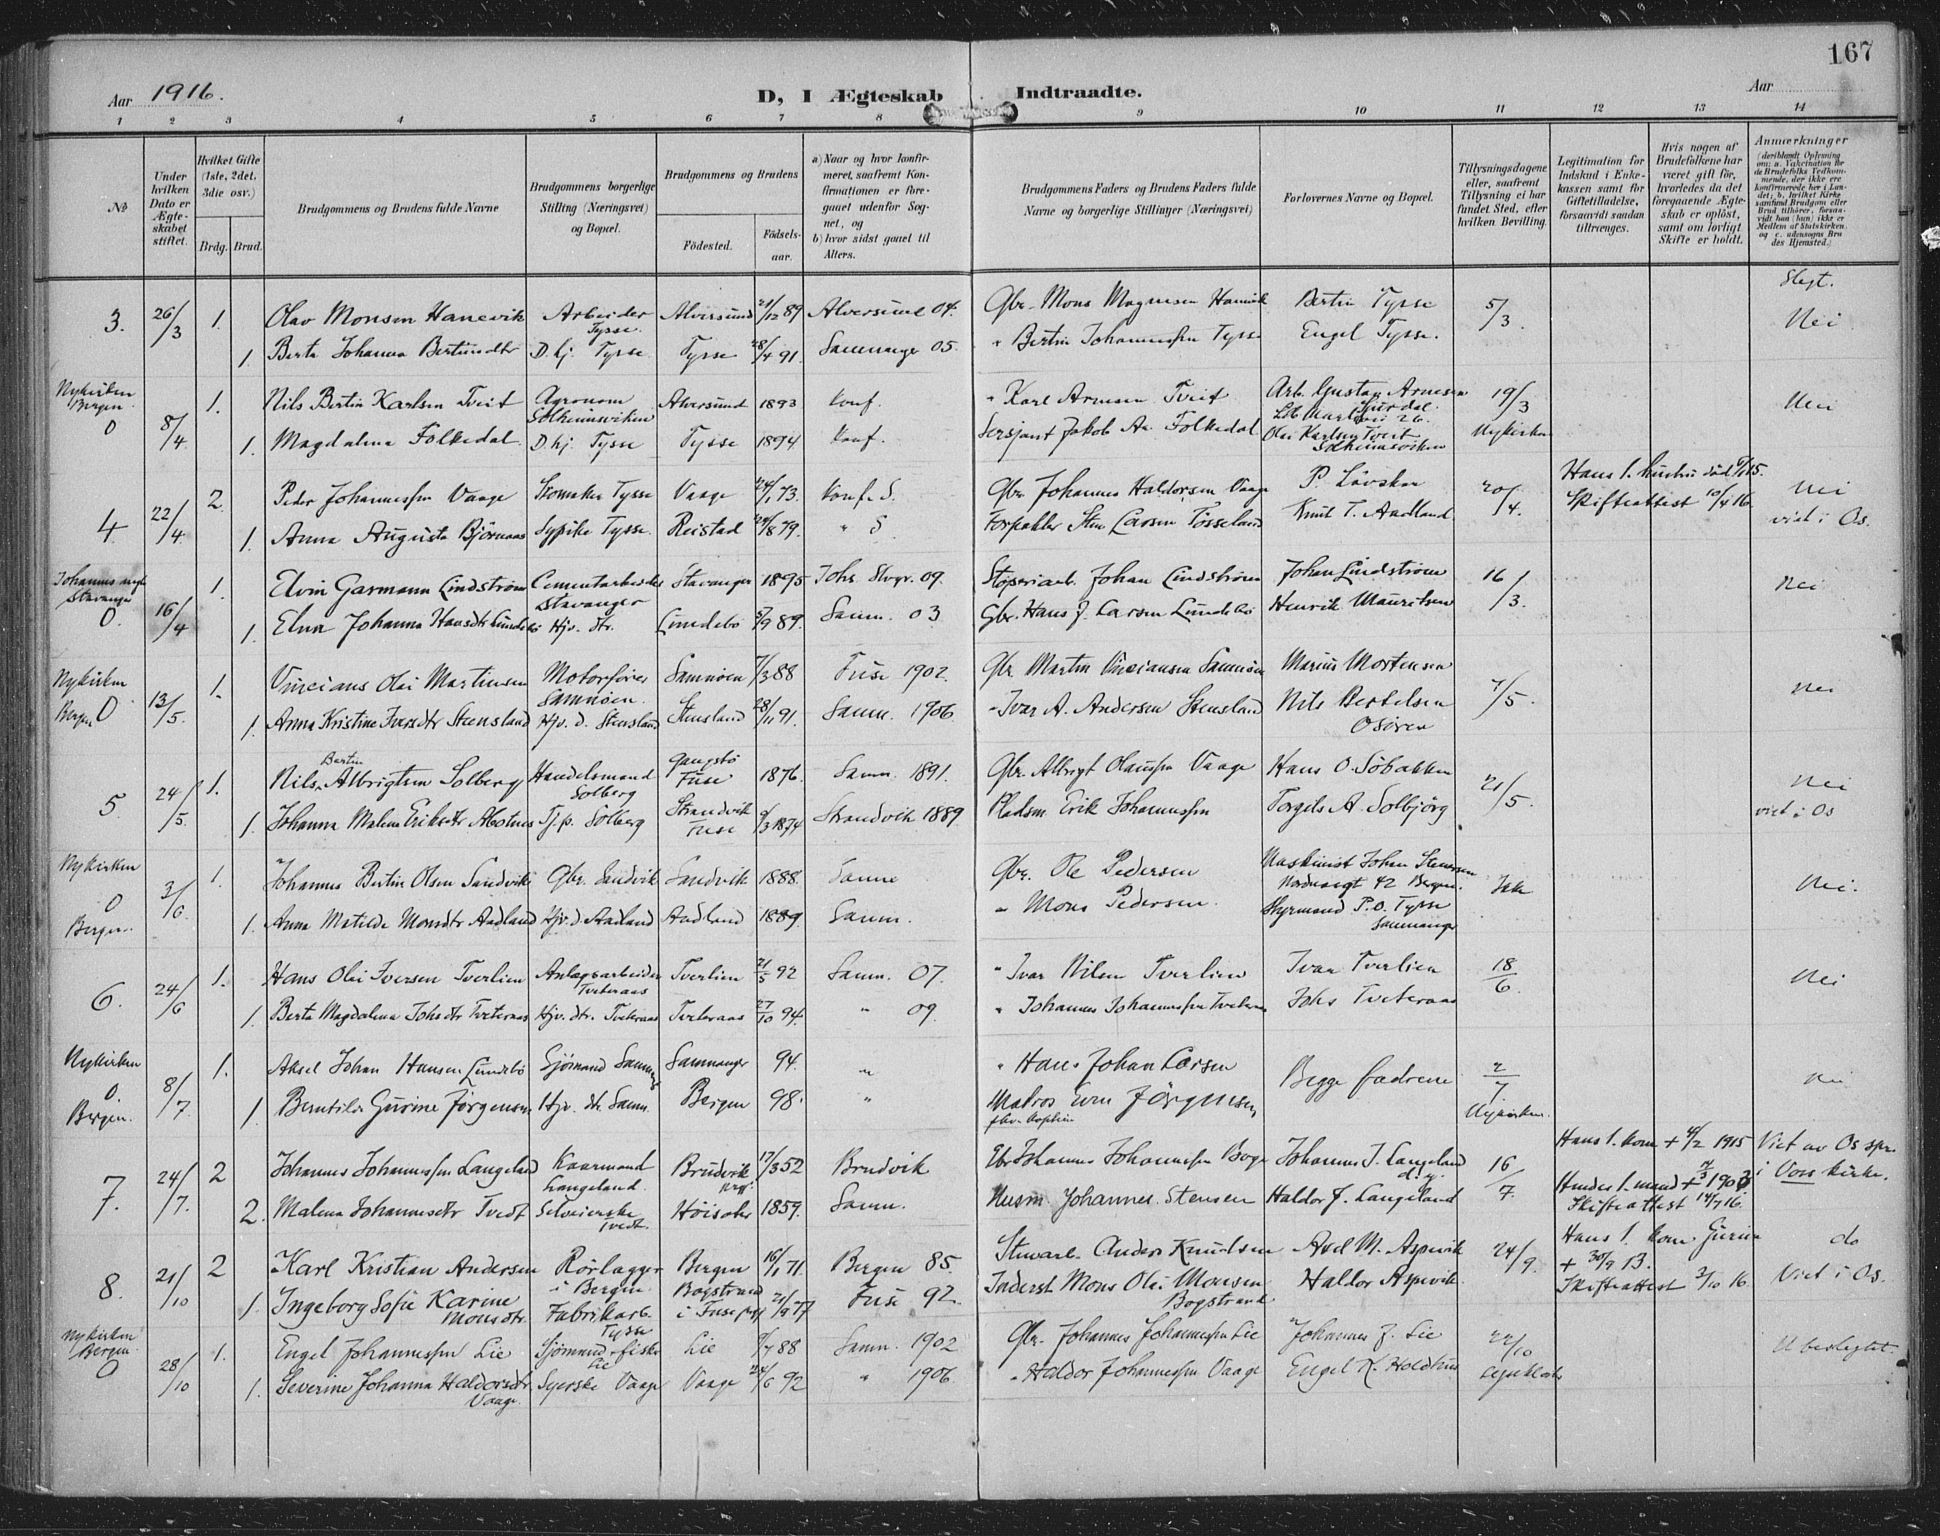 167
Aar 1916.
D, I Ægteskab Indtraadte.
Aar
1 2 3 4 5 6 7 8 9 10 11 12 13 14
№
Under hvilken Dato er Ægteskabet stiftet.
Hvilket Gifte (1ste, 2det, 3die osv.)
Brdg. Brud.
Brudgommens og Brudens fulde Navne
Brudgommens borgerlige Stilling (Næringsvei) og Bopæl.
Brudgommens og Brudens
Födested. Födselsaar.
a) Naar og hvor konfirmeret, saafremt Konfirmationen er foregaaet udenfor Sognet, og
b) hvor sidst gaaet til Alters.
Brudgommens Faders og Brudens Faders fulde Navne og borgerlige Stillinger (Næringsvei)
Forlovernes Navne og Bopæl.
Tillysningsdagene eller, saafremt Tillysning ei har fundet Sted, efter hvilken Bevilling.
Legitimation for Indskud i Enkekassen samt for Giftetilladelse, forsaavidt saadan tiltrænges.
Hvis nogen af Brudefolkene har været gift för, hvorledes da det foregaaende Ægteskab er oplöst, samt om lovligt Skifte er holdt.
Anmærkninger
(deriblandt Oplysning om: a. Vakcination for de Brudefolks Vedkommende, der ikke ere konfirmerede her i Landet; b. hvilket Kirkesamfund Brudgom eller Brud tilhörer, forsaavidt han (hun) ikke er Medlem af Statskirken, og c. udensogns Brudes Hjemsted.)
Slegt.
3. 26/3 1. Olav Monsen Hanevik Arbeider Tysse. Alversund 21/12 89 Alversund 04. Gbr. Mons Magnesen Hanevik Bertin Tysse 5/3 Nei
1 Berta Johanna Bertinsdtr D. hj. Tysse Tysse 28/4 91. Samnanger 05. " Bertin Johannessen Tysse Engel Tysse.
Nykirken Bergen
0 8/4 1. Nils Bertin Karlsen Tveit Agronom Solheimsviken Alversund 1893 konf. " Karl Arnesen Tveit Arb. Gustav Arnesen 19/3 Nei
1. Magdalena Folkedal D. hj. Tysse Tysse 1894 konf. Sersjant Jakob An. Folkedal Olai Karlsen Tveit Solheimsviken Nykirken
4. 22/4 2. Peder Johannessen Vaage Skomaker Tysse Vaage 24/1 73. konf. S. Gbr. Johannes Haldorsen Vaage P. Lövskar 20/4. Hans 1. hustru död Skifteattest 10/4 16. Nei
1. Anna Augusta Björnaas Sypike Tysse. Reistad 29/8 79. " S Forpakter Sten Larsen Tösseland Knut T. Aadland viet i Os.
Stavanger
0. 16/4 1. Elvin Garmann Lindström Cementarbeider Stavanger Stavanger 1895 Johs. Stvgr. 09. Johan Lindström Johan Lindström 16/3. Nei
1. Elna Johanna Hansdtr Lundebö Hjv. dtr. Lundebö 5/9 89. Samn. 03 Gbr. Hans J. Larsen Lundebö Henrik Mauritsen
Nykirken
Bergen 0 13/5. 1. Vincians Olai Martinsen Motorförer Samnöen. Samnöen 7/3 88 Fuse 1902. Gbr. Martin Vinciansen Samnöen Marius Mortensen 7/5. Nei
1. Anna Kristine Iversdtr Stensland Hjv. d. Stensland Stensland 28/11 91. Samn. 1906 " Ivar A. Andersen Stensland Nils Bertelsen Osören
5 24/5. 1. Nils Bertin Albrigtsen Solberg Handelsmand Solberg Gangstö Fuse 1876. Samn. 1891. Gbr. Albrigt Olaussen Vaage Hans O. Söbakken 21/5. Nei
1. Johanna Malena Eriksdtr Abotnes Tj.p. Solberg Strandvik Fuse 9/3 1874 Strandvik 1889 Pladsm. Erik Johannessen Torgels A. Solbjörg viet i Os
Nykirken
0 3/6 1. Johannes Bertin Olsen Sandvik Gbr. Sandvik Sandvik 1888. Samn. Gbr. Ole Pedersen Maskinist Johan Stenersen 42 Bergen. Ikke Nei.
Bergen. 1. Anna Matilde Monsdtr Aadland Hjv. d Aadland Aadland 1889. Samn. " Mons Pedersen. Styrmand P. O. Tysse Samnanger
6. 24/6 1. Hans Olai Iversen Tverlien Anlægsarbeider Tveteraas Tverlien 21/5 92 Samn. 07. " Ivar Nilsen Tverlien Ivar Tverlien 18/6. Nei
1. Berta Magdalena Johsdtr Tveteraas Hjv. dtr. Tveteraas Tveteraas 27/10 94. " 09. " Johannes Johannessen Tveteraas Johs Tveteraas
Nykirken
0 8/7 1. Aksel Johan Hansen Lundebö Sjömand Samnanger Samnanger 94. " " Hans Johan Larsen Begge fædrene 2/7 Nei
Bergen. 1. Berntilde Gurine Jörgensen Hjv. dtr. Samn. Bergen 98. " Matros Even Jörgensen Nykirken.
7. 24/7. 2 Johannes Johannessen Langeland Kaarmand Langeland. Brudvik 17/3 52 Brudvik Johannes Johannessen Johannes J. Langeland d.y. 16/7. Hans 1. kone + 4/2 1915 Viet av Os spr. i Voss kirke.
2. Malena Johannesdtr Tvedt Selveierske Tvedt. Höisæter 1859. Samn. Husm. Johannes Stensen Haldor J. Langeland Hendes 1. mand + 1903 Skifteattest 14/7 16.
8. 21/10 2 Karl Kristian Andersen Rörlægger i Bergen Bergen 16/1 71. Bergen 85. Stuearb. Anders Knudsen Axel M. Aspevik 24/9. Hans 1. kone Gurine + 30/9 13. Skifteattest 3/10 16. do
1. Ingeborg Sofie Karine Monsdtr. Fabrikarb. Tysse Bogstrand i Fuse pgj 21/9 77 Fuse 92. Inderst Mons Olai Monsen Bogstrand. Haldor Aspevik. Viet i Os.
Nykirken Bergen.
0 28/10 1. Engel Johannessen Lie Sjömand + fisker Lie Lie 88 Samn. 1902 Gbr. Johannes Johannessen Lie Johannes J. Lie 22/10 Ubeslegtet.
1. Severine Johanna Haldorsdtr Vaage. Syerske Vaage Vaage 24/6 92 " 1906. " Haldor Johannessen Vaage Engel K. Holdhus